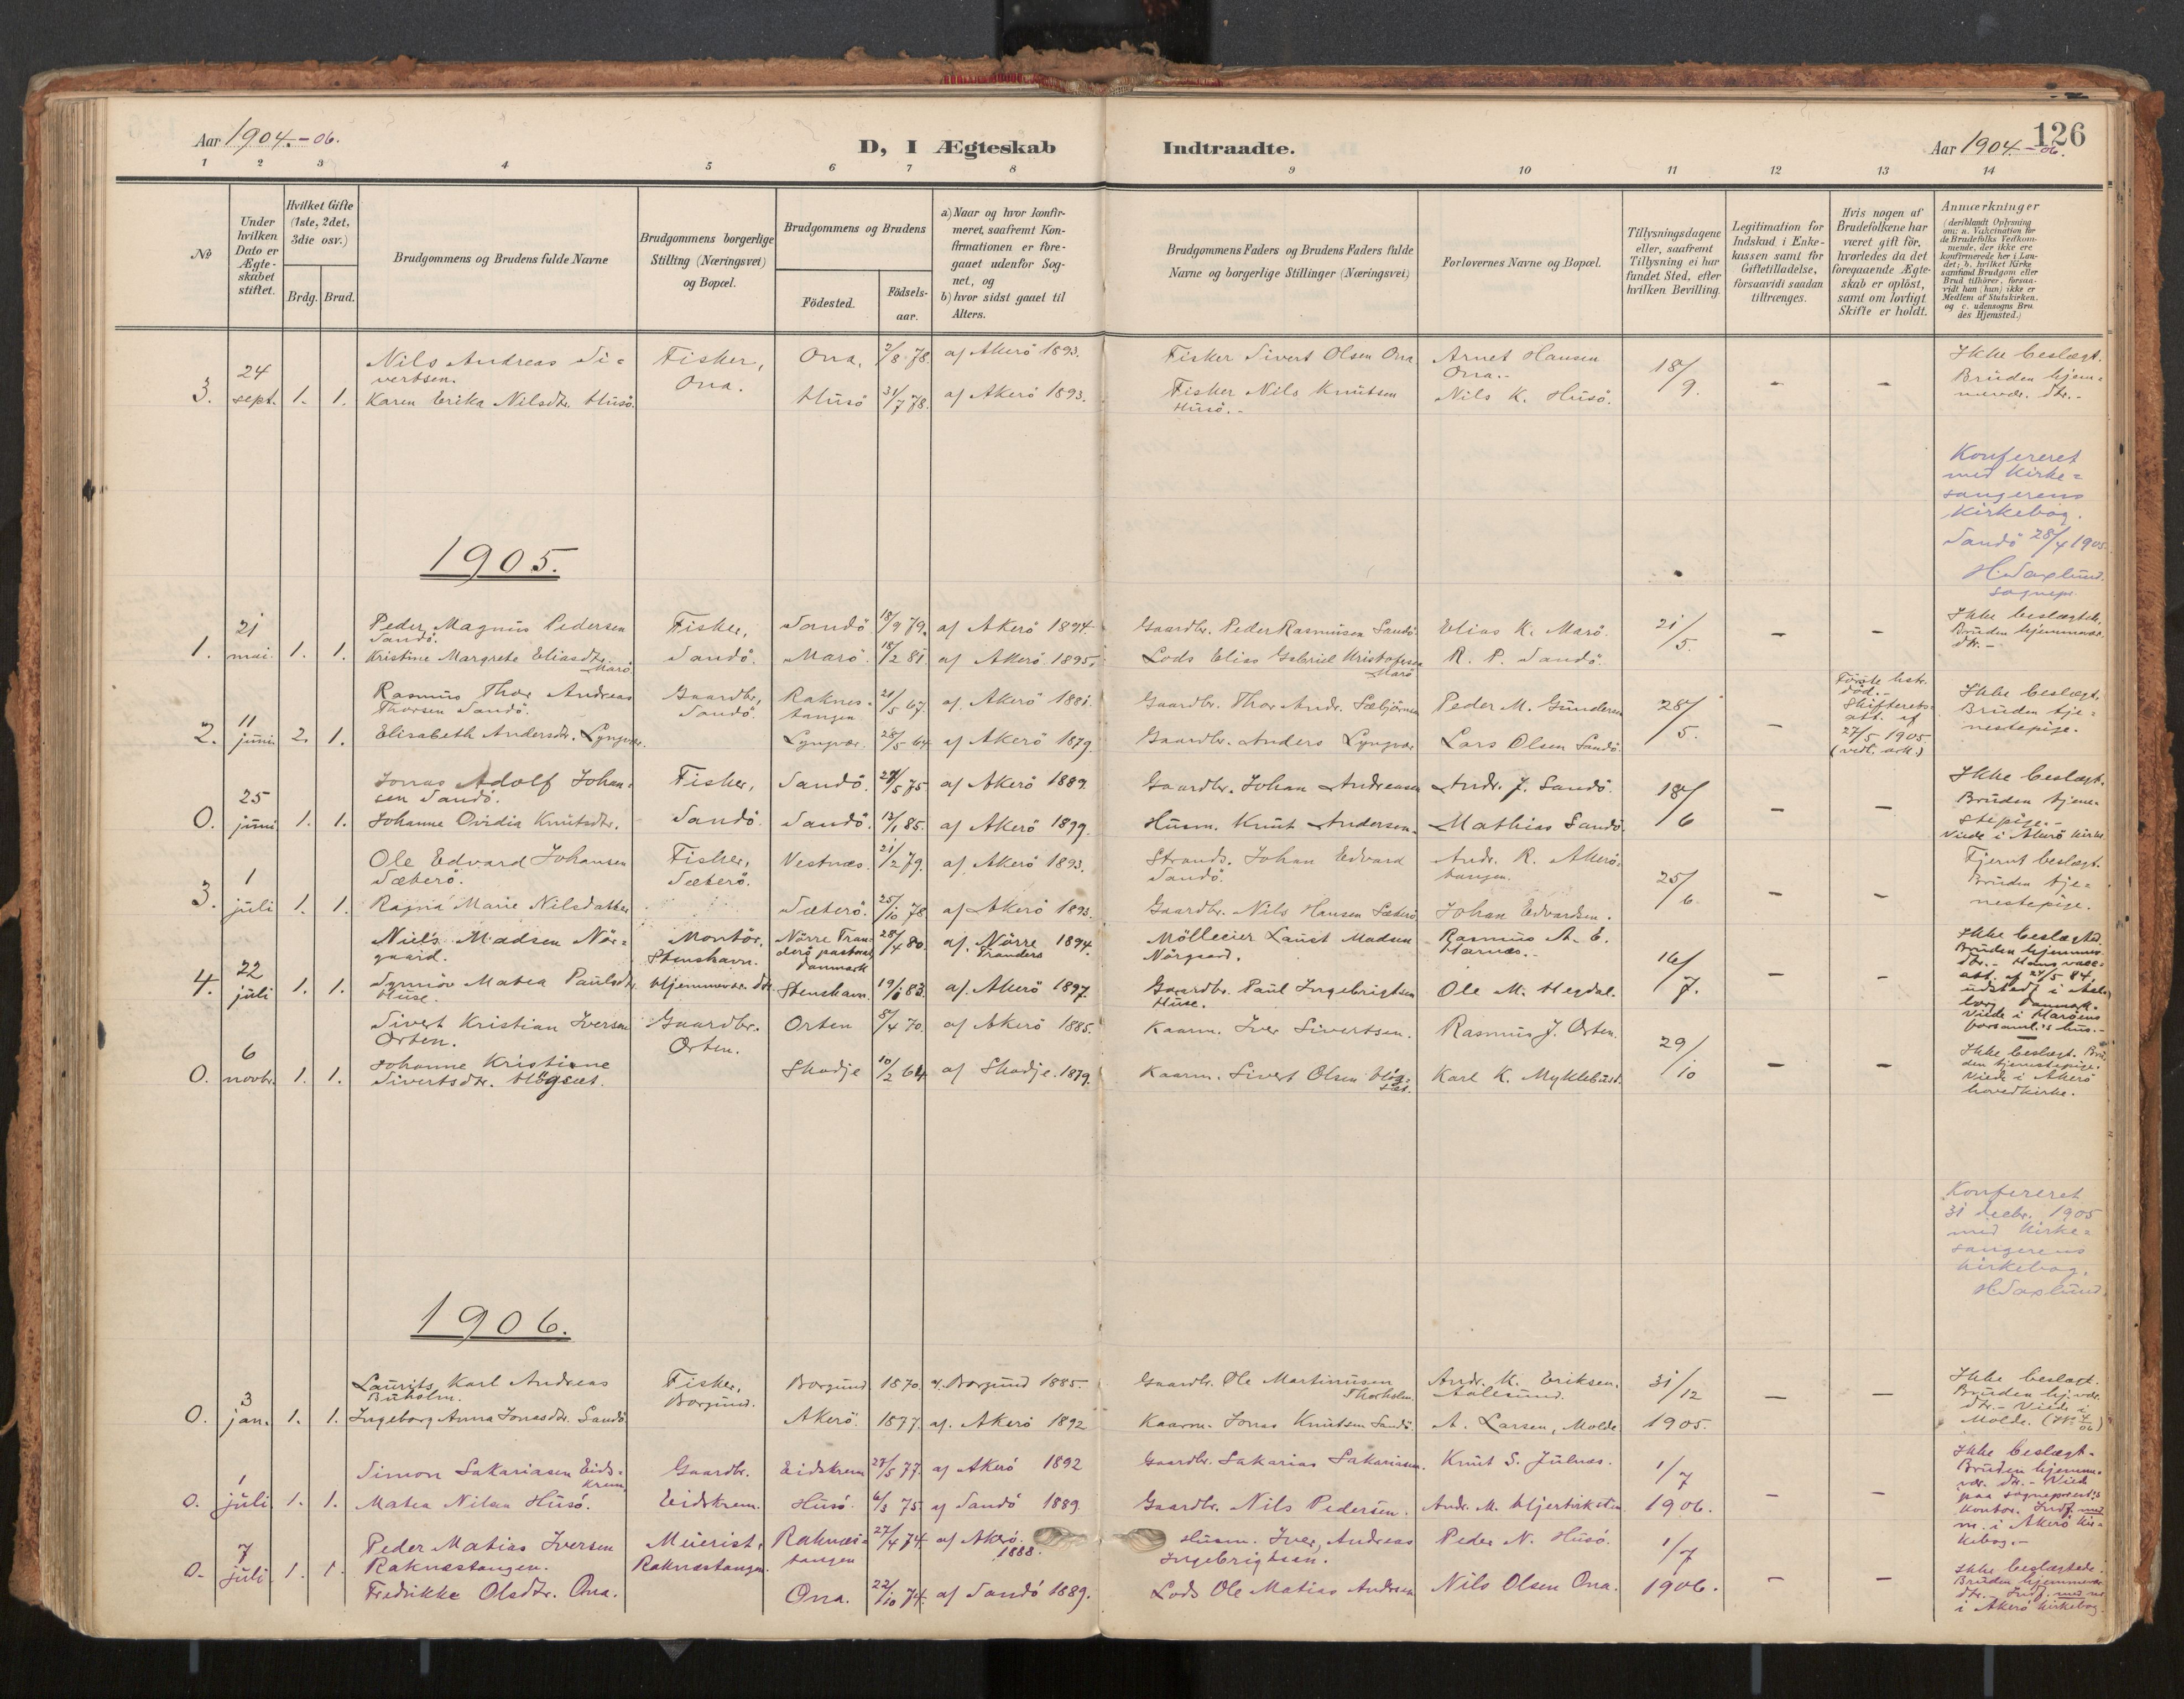 Aar 1904.-06.
D, I Ægteskab Indtraadte.
Aar 1904.-06.
126
1 2 3 4 5 6 7 8 9 10 11 12 13 14
No
Under hvilken Dato er Ægteskabet stiftet.
Hvilket Gifte (1ste, 2det, 3die osv.)
Brdg. Brud.
Brudgommens og Brudens fulde Navne
Brudgommens borgerlige Stilling (Næringsvei) og Bopæl.
Brudgommens og Brudens
Födested.
Födselsaar.
a) Naar og hvor konfirmeret, saafremt Konfirmationen er foregaaet udenfor Sognet, og
b) hvor sidst gaaet til Alters.
Brudgommens Faders og Brudens Faders fulde Navne og borgerlige Stillinger (Næringsvei)
Forlovernes Navne og Bopæl.
Tillysningsdagene eller, saafremt Tillysning ei har fundet Sted, efter hvilken Bevilling.
Legitimation for Indskud i Enkekassen samt for Giftetilladelse, forsaavidt saadan tiltrænges.
Hvis nogen af Brudefolkene har været gift för, hvorledes da det foregaaende Ægteskab er oplöst, samt om lovligt Skifte er holdt.
Anmærkninger
(deriblandt Oplysning om: a. Vakcination for de Brudefolks Vedkommende, der ikke ere konfirmerede her i Landet; b. hvilket Kirkesamfund Brudgom eller Brud tilhörer, forsaavidt han (hun) ikke er Medlem af Statskirken. og c. udensogns Brudes Hjemsted.)
3. 24 sept. 1. 1.
Nils Andreas Sivertsen. Fisker, Ona. Ona, 2/8 78. af Akerö 1893. Fisker Sivert Olsen Ona Arnet Hansen Ona.- 18/9. - - Ikke beslægt.
Karen Erika Nilsdtr. Husö. Husö 31/7 78. af Akerö 1893. Fisker Nils Knutsen Husö.- Nils K. Husö. Bruden hjemmevær. dtr.-
Konfereret
med Kirke=
sangerens
Kirkebog.
Sandö 28/4 1905.
H. Saxlund.
sognepr.
1905.
1. 21 mai. 1. 1.
Peder Magnus Pedersen Sandö. Fisker, Sandö. Sandö 18/9 79. af Akerö 1894. Gaardbr. Peder Rasmusen Sandö. Elias K. Marö. 21/5. - - Ikke beslægtede.
Kristine Margrete Eliasdtr. Marö Marö. 18/2 81. af Akerö 1895. Lods Elias Gabriel Kristofersen Marö R. P. Sandö. Bruden hjemmevær. dtr.-
2. 11 juni. 2. 1.
Rasmus Thor Andreas Thorsen Sandö. Gaardbr, Sandö. Raknestangen 21/5 67. af Akerö 1881. Gaardbr. Thor Andr. Sæbjörnsen Peder M. Gundersen 28/5. - Förste hstr. död.- Skifterets att. af 27/5 1905 (vedl. ark.) Ikke beslægt.
Elisabeth Andersdtr. Lyngvær. Lyngvær. 28/5 64 af Akerö 1879. Gaardbr. Anders Lyngvær Lars Olsen Sandö. Bruden tjenestepige.
0. 25 juni 1. 1.
Jonas Adolf Johansen Sandö. Fisker, Sandö. Sandö. 27/5 75 af Akerö 1889. Gaardbr. Johan Andreasen Andr. J. Sandö. 18/6 - - Ikke beslægt.
Johanne Ovidia Knutsdtr. Sandö. 13/1 85. af Akerö 1899. Husm. Knut Andersen. Mathias Sandö. Bruden tjenestepige.- Viede i Akerö kirke
3. 1 juli 1. 1.
Ole Edvard Johansen Sæterö. Fisker, Sæterö. Vestnæs. 21/2 79. af Akerö 1893. Strands. Johan Edvard Sandö. Andr. R. Akeröstangen. 25/6. - - Fjernt beslægt.
Ragna Marie Nilsdatter Sæterö. 25/10 78 af Akerö 1893. Gaardbr. Nils Hansen Sæterö Johan Edvardsen. Bruden tjenestepige.
4. 22 juli 1. 1.
Niels Madsen Nörgaard. Montör, Stenshavn. Nörre Tranders pastorat Danmark 28/4 80. af. Nörre Tranders 1894. Möllerier Laust Madsen Nörgaard. Rasmus A. E. Harnæs.- 16/7. - - Ikke beslægted.
Synnöv Matea Paulsdtr. Huse. Hjemmevær. dtr. Stenshavn. 19/8 83. af. Akerö 1897. Gaardbr. Paul Ingebrigtsen Huse. Ole M. Hegdal. Bruden hjemmev. dtr.- Hans vacc. att. af 24/5 84, udstedt i Aalborg Danmark. Viede i Haröens forsaml.s hus.-
0. 6 novbr. 1. 1.
Sivert Kristian Iversen Orten. Gaardbr. Orten. Orten 8/4 70. af Akerö 1885. Kaarm. Iver Sivertsen. Rasmus J. Orten. 29/10 - - Ikke beslægt. Bruden tjenestepige.
Johanne Kristiane Sivertsdtr. Högset. Skodje 10/2 64. af Skodje. 1879. Kaarm. Sivert Olsen Högset. Karl K. Myklebust. Viede i Akerö hovedkirke.
Konfereret
31 decbr. 1905
med Kirke=
sangerens
kirkebog.
H Saxlund.
1906.
0. 3 jan. 1. 1.
Laurits Karl Andreas Buholm. Fisker, Borgund. Borgund 1870. af. Borgund 1885. Gaardbr. Ole Martinusen Thorholm. Andr. M. Eriksen. Aalesund. 31/12 1905. - - Ikke beslægt.
Ingeborg Anna Jonasdtr. Sandö Akerö. 1877. af. Akerö 1892 Kaarm. Jonas Knutsen Sandö. A. Larsen, Molde Bruden hj.vær. dtr.- Viede i Molde.
0. 1 juli 1. 1.
Simon Sakariasen Eidskrem. Gaardbr. Eidskrem. Eidskrem 27/5 77. af Akerö 1892 Gaardbr. Sakarias Sakariasen. Knut S. Julnæs. 1/7 1906. - - Ikke beslægt.
Matea Nilsen Husö. Husö. 6/3 75. af Sandö 1889. Gaardbr. Nils Pedersen. Andr. M. Hjertviksten Bruden hjemmevær. dtr. Viede paa sogneprest.s kontor. Indf. med n. i Akerö Kirkebog.-
0. 7 juli. 1. 1.
Peder Matias Iversen Raknæstangen. Murerist, Raknæstangen. Raknæstangen 27/4 74. af Akerö. 1888. Husm. Iver Andreas Ingebrigtsen. Peder N. Husö. 1/7 1906. - - Ikke beslægtede.
Fredrikke Olsdtr. Ona. Ona. 22/10 74. af Sandö 1889. Lods Ole Matias Andresen Nils Olsen Ona. Bruden hjemmevær. dtr.- Indf. med nr. i Akerö kirkebog.